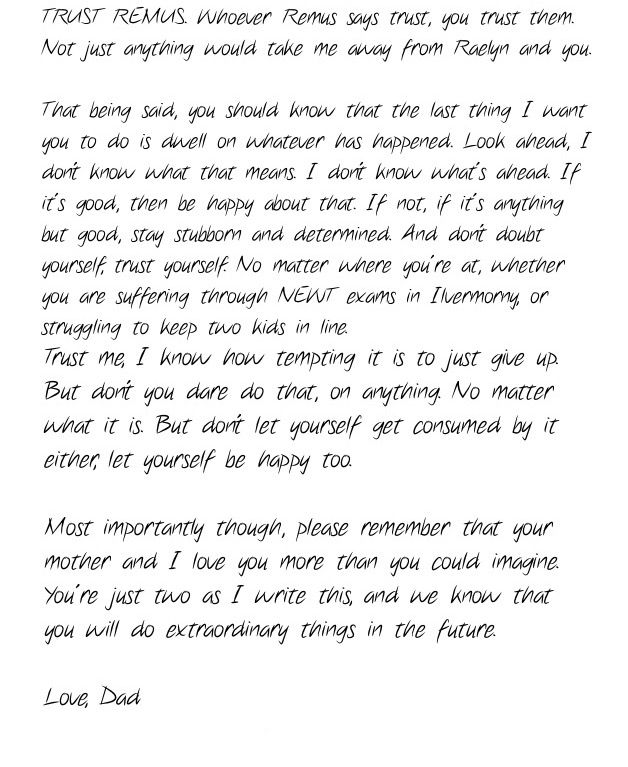 TRUST REMUS. Whoever Remus says trust, you trust them.
Not just anything would take me away from Raelyn and you.
That being said, you should know that the last thing I want
you to do is dwell on whatever has happened. Look ahead, I
don't know what that means. I don't know what's ahead. If
it's good, then be happy about that. If not, if it's anything
but good, stay stubborn and determined. And don't doubt
yourself, trust yourself. No matter where you're at, whether
you are suffering through NEWT exams in Ilvermorny, or
struggling to keep two kids in line.
Trust me, I know how tempting it is to just give up.
But don't you dare do that, on anything. No matter
what it is. But don't let yourself get consumed by it
either, let yourself be happy too.
Most importantly though, please remember that your
mother and I love you more than you could imagine.
You're just two as I write this, and we know that
you will do extraordinary things in the future.
Love, Dad